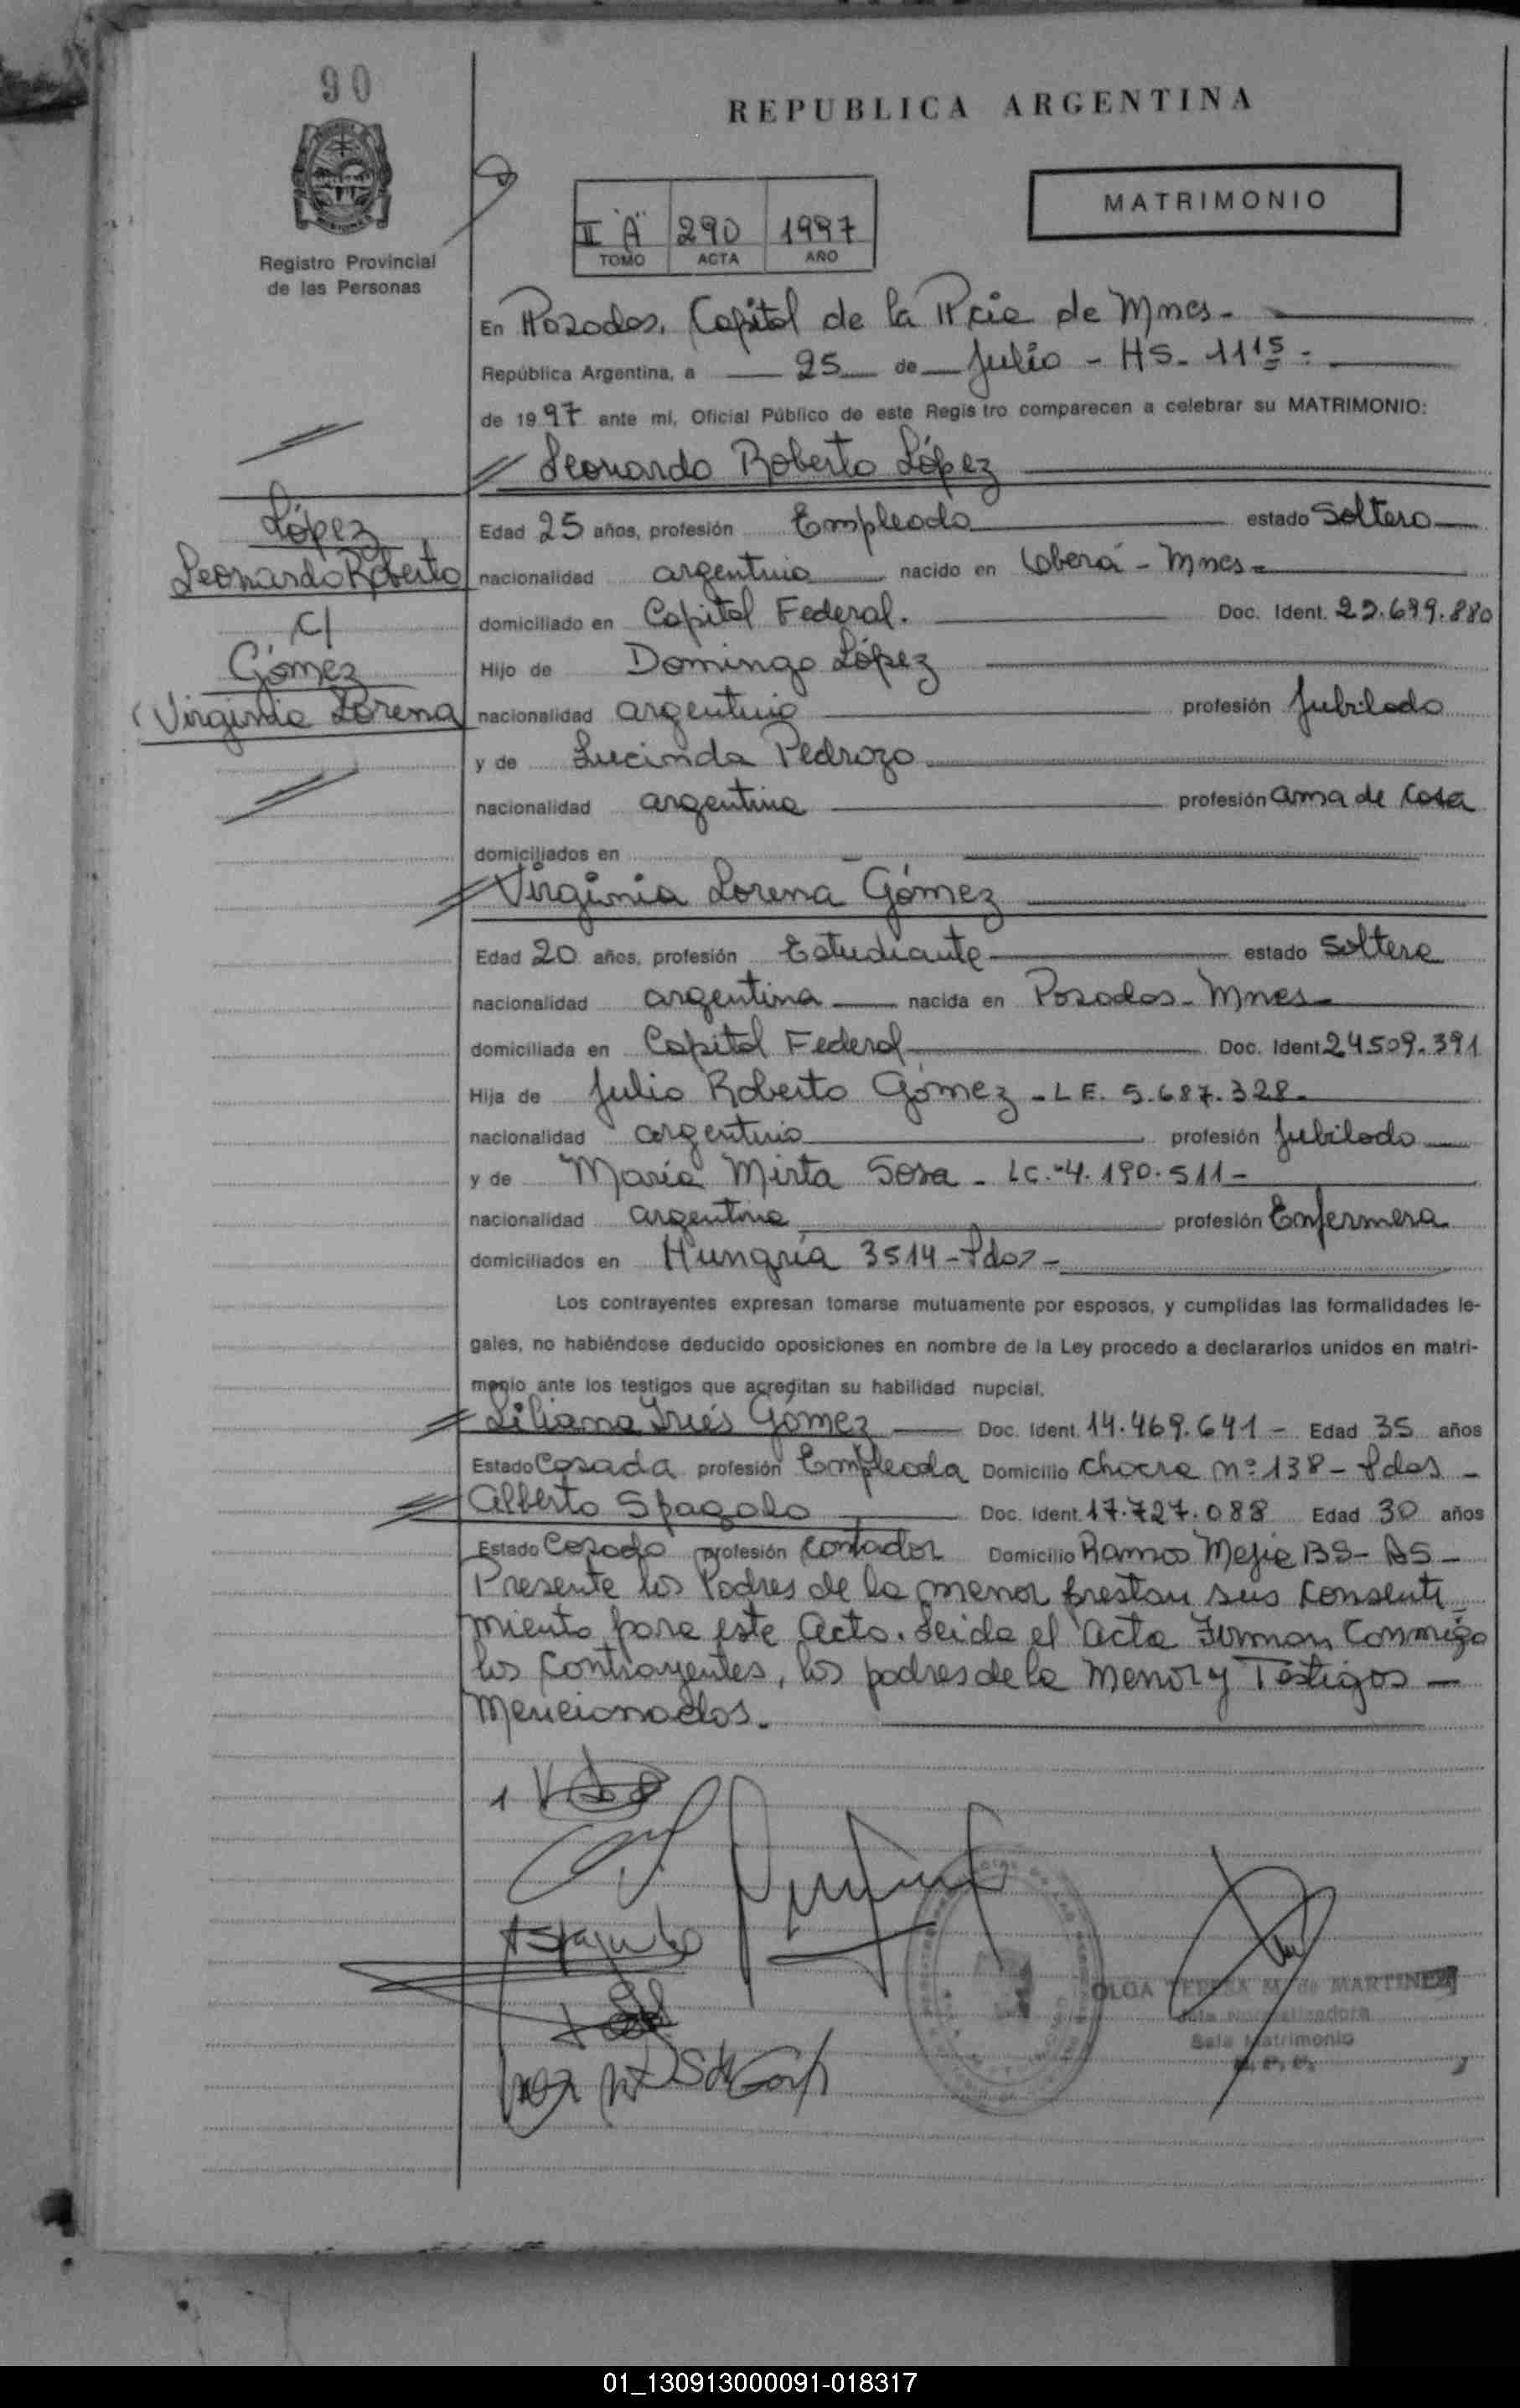 90
REPUBLICA ARGENTINA
MATRIMONIO
Registro Provincial
de las Personas
II "A" 290 1997
TOMO ACTA AÑO
En Posadas, Capital de la Pcia de Mnes-
República Argentina, a 25 de Julio - HS. 11 15 -
de 1997 ante mi, Oficial Público de este Registro comparecen a celebrar su MATRIMONIO:
Leonardo Roberto López
López
Leonardo Roberto
C/
Gómez
Virginia Lorena
Edad 25 años, profesión Empleado estado Soltero
nacionalidad argentino nacido en Oberá - Mnes-
domiciliado en Capital Federal. Doc. Ident. 22.699.880
Hijo de Domingo López
nacionalidad argentino profesión Jubilado
y de Lucinda Pedrozo
nacionalidad argentina profesión ama de casa
domiciliados en
Virginia Lorena Gómez
Edad 20 años, profesión Estudiante estado Soltera
nacionalidad argentina nacida en Posadas - Mnes-
domiciliada en Capital Federal Doc. Ident. 24509.391
Hija de Julio Roberto Gómez - L E. 5.687.328-
nacionalidad argentino profesión Jubilado
y de María Mirta Sosa - LC.-4.190.511-
nacionalidad argentina profesión Enfermera
domiciliados en Hungría 3514 - Pdas -
Los contrayentes expresan tomarse mutuamente por esposos, y cumplidas las formalidades le-
gales, no habiéndose deducido oposiciones en nombre de la Ley procedo a declararlos unidos en matri-
monio ante los testigos que acreditan su habilidad nupcial.
Liliana Inés Gómez Doc. Ident. 14.469.641 - Edad 35 años
Estado Casada profesión Empleada Domicilio Chacra nº 138 - Pdas -
Alberto Spagolo Doc. Ident. 17.727.088 Edad 30 años
Estado Casado profesión Contador Domicilio Ramos Mejia BS- AS-
Presente los Padres de la menor prestan sus consenti-
miento para este Acto. Leida el Acta Firman Conmigo
los Contrayentes, los padres de la Menor y Testigos -
Mencionados.
OLGA TERESA M. de MARTINEZ
Sala Matrimonio
01_130913000091-018317